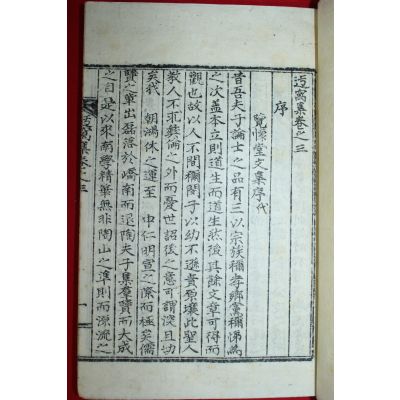 窩集卷之三
序
覽懷堂文集序代
昔吾夫子論士之品有三以宗族稱孝鄕黨稱悌爲
之次盖本立則道生而道生然後其餘文章可得而
觀也故以人不間稱閔子以幼不遜責原壤此聖人
敎人不外彝倫之外而憂世詔後之意可謂深且切
矣我 朝鴻休之運至 中仁明宣之際而極矣儒
賢之輩出磊落於嶠南而退陶夫子集羣賢而大成
之自是以來南學精華無非陶山之準則而源流之
窩集卷之三 一